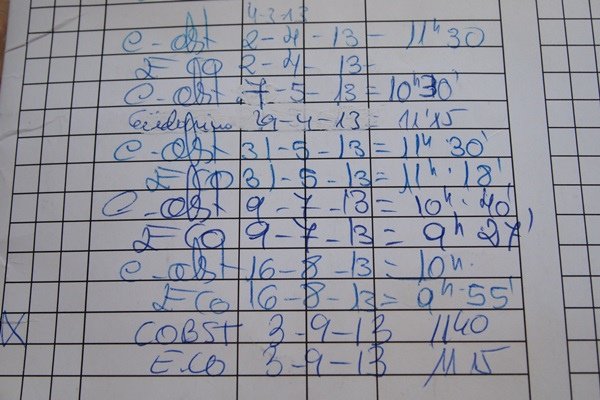 4-3-13
C-obst 2-4-13- 11h30
Eco 2-4-13-
C-obst 7-5-13=10h30'
29-4-13= 11h15
C-obst 31-5-13=11h30'
ECO 31-5-13=11h.18'
C-obst 9-7-13=10h.40'
ECO 9-7-13= 9h27'
C-obst 16-8-13= 10h.
ECO 16-8-13=9h.55'
X COBST 3-9-13 1140
ECO 3-9-13 1115